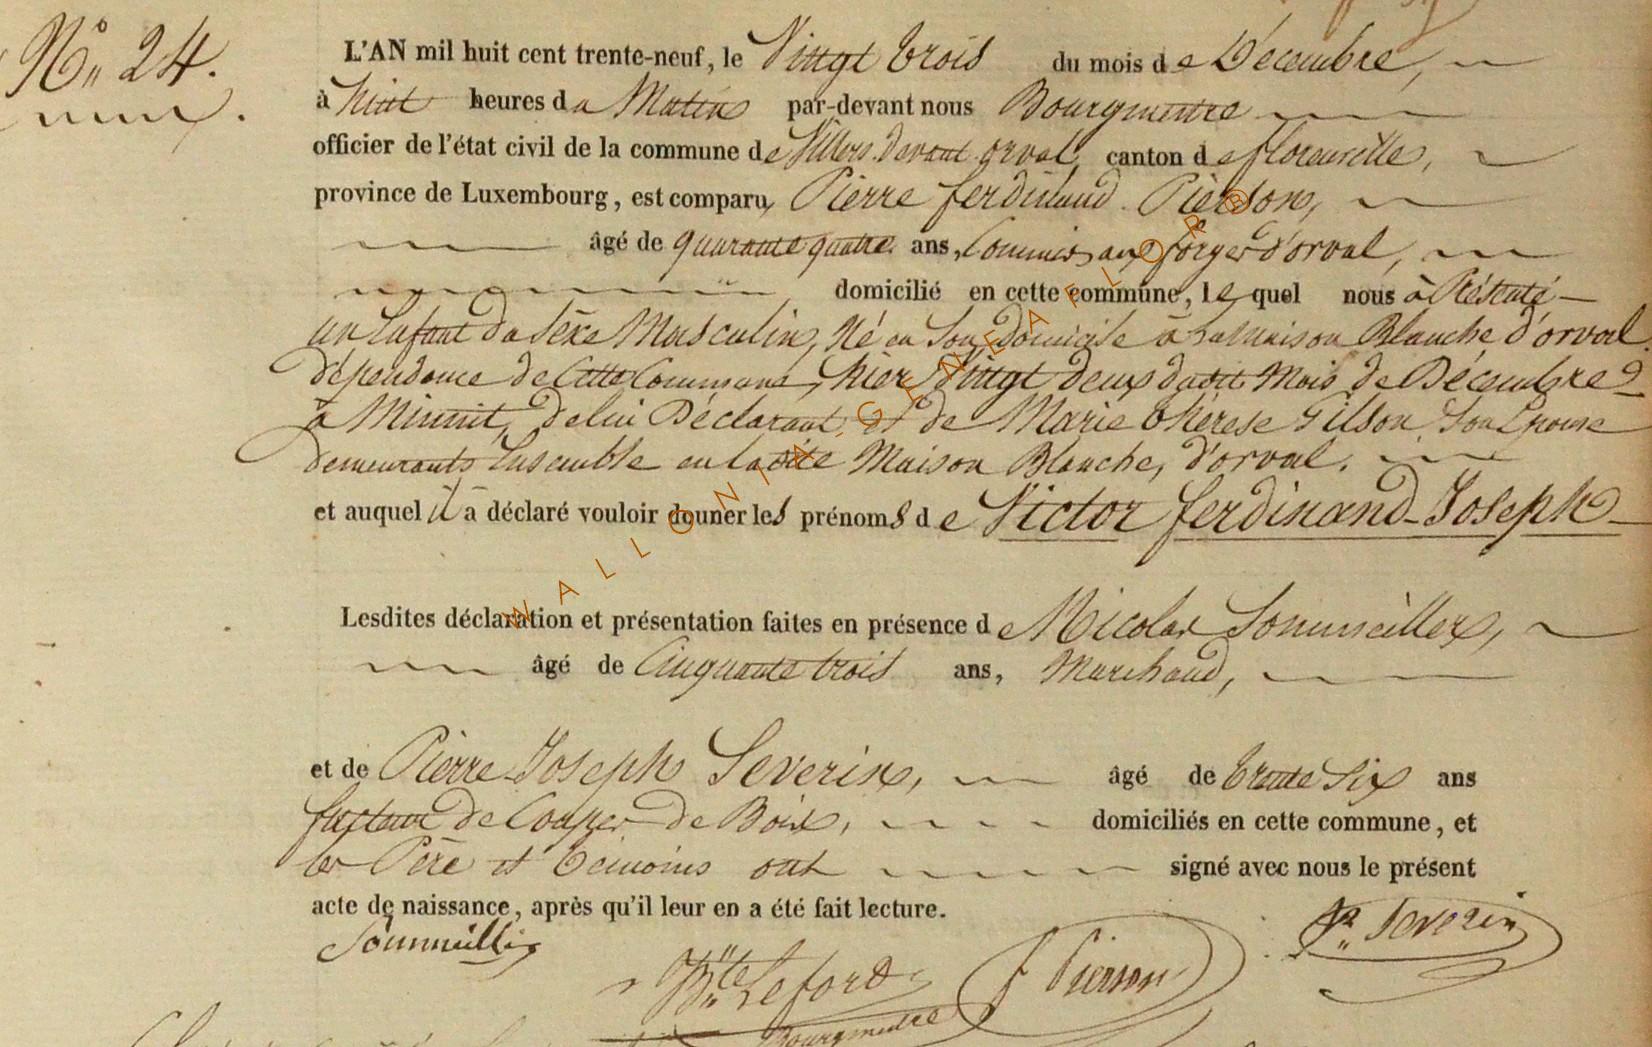 N° 24.
L'AN mil huit cent trente-neuf, le Vingt trois du mois de Décembre,
à huit heures du Matin par-devant nous Bourgmestre
officier de l'état civil de la commune de Villers devant orval, canton de florenville,
province de Luxembourg, est comparu, Pierre ferdinand Pierson,
âgé de quarante quatre ans, Commis aux forges d'orval,
domicilié en cette commune, lequel nous à Présenté
un Enfant du Sèxe Masculin, Né en Son Domicile à la Maison Blanche d'orval
dépendance de Cette Commune, hier Vingt deux dudit Mois de Décembre
à Minuit, de lui Déclarant et de Marie thérese Gilson Son Epouse
demeurants Ensemble en ladite Maison Blanche, d'orval.
et auquel il a déclaré vouloir donner les prénoms de Victor ferdinand Joseph
Lesdites déclaration et présentation faites en présence de Nicolas Sommeillier,
âgé de Cinquante trois ans, Marchand,
et de Pierre Joseph Severin, âgé de trente Six ans
facteur de Coupes de Bois, domiciliés en cette commune, et
les Père et témoins ont signé avec nous le présent
acte de naissance, après qu'il leur en a été fait lecture.
Sommeillier
Bte Leford
f Pierson
Severin
Bourgmestre
WALLONIA-GENEAFLOR®